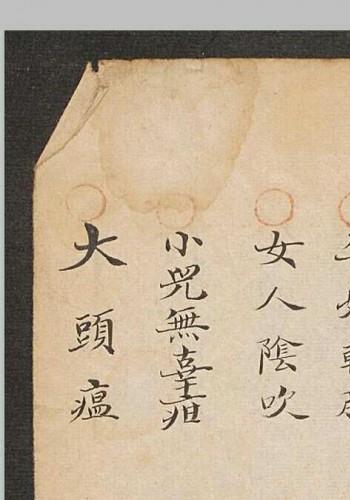 女人陰吹
小兒無辜疳
大頭瘟